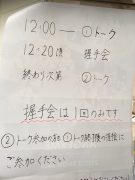 12:00 ── ①トーク
12:20頃 握手会
終わり次第 ②トーク
握手会は1回のみです
②トーク参加の方も①トーク終了後の握手に
ご参加ください